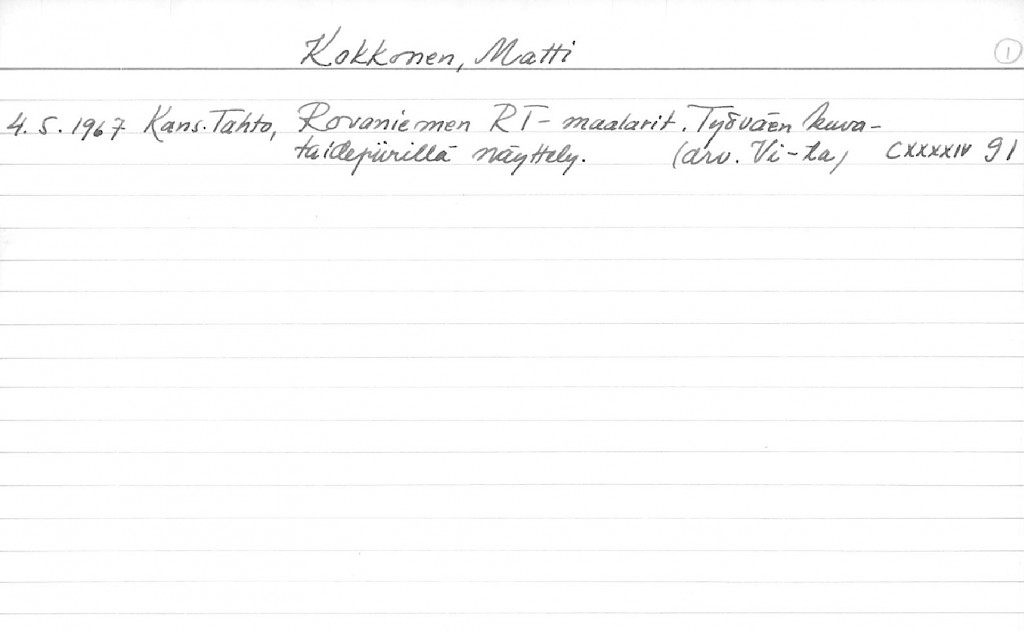 Kokkonen, Matti
1
4.5.1967 Kans.Tahto, Rovaniemen RT-maalarit. Työväen kuva-
taidepiirillä näyttely. (arv. Vi-la) CXXXXIV 91